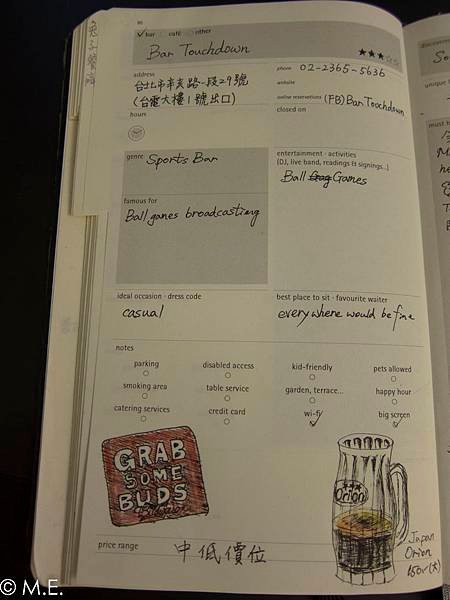 bar café other
Bar Touchdown
address
台北市辛亥路一段29號
(台電大樓1號出口)
hours
phone 02-2365-5636
website
online reservations (FB) Bar Touchdown
closed on
genre Sports Bar
famous for
Ball games broadcasting
entertainment · activities
(DJ, live band, readings & signings...)
Ball Games
ideal occasion · dress code
casual
best place to sit · favourite waiter
everywhere would be fine
notes
parking disabled access kid-friendly pets allowed
smoking area table service garden, terrace... happy hour
catering services credit card wi-fi big screen
GRAB
SOME
BUDS
Orion
Japan
Orion
150(大)
price range 中低價位
So
© M.E.